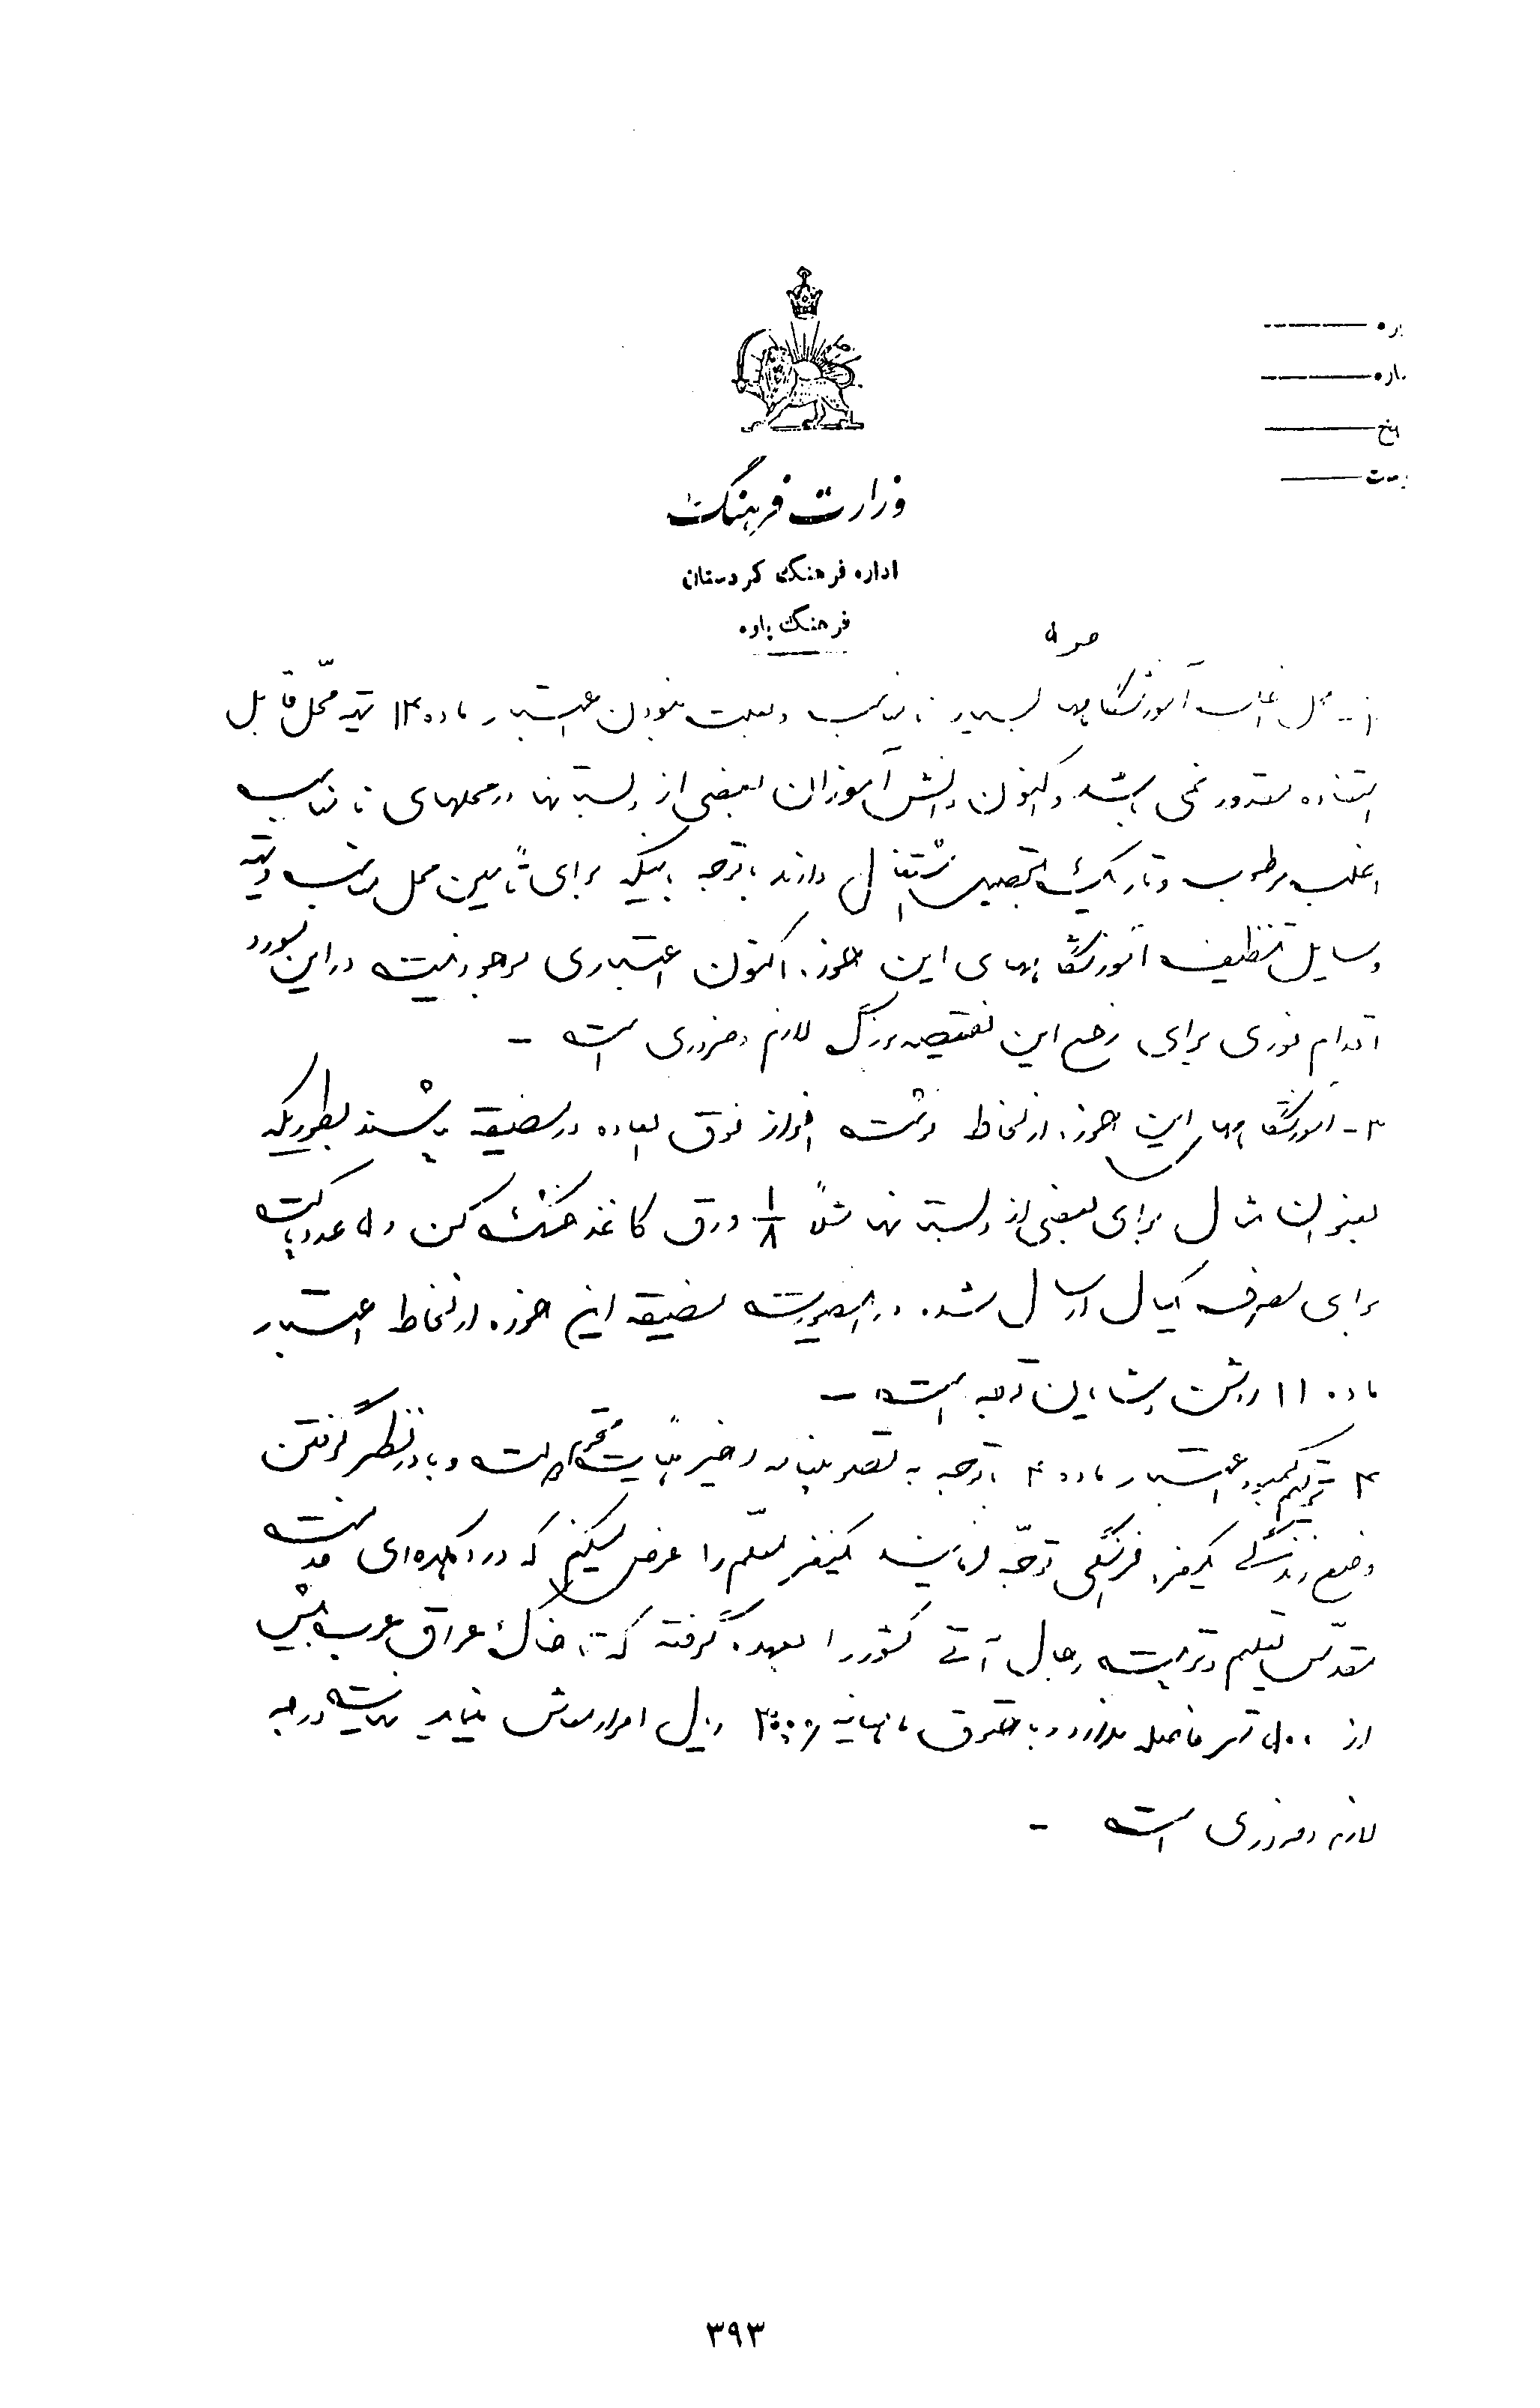 وزارت فرهنگ
اداره فرهنگ کردستان
فرهنگ پاوه
ص ۵
محل غالب آموزشگاهها بسیار نامناسب و بعلت نبودن اعتبار ماده ۱۳ تهیه محل قابل
استفاده مقدور نمی باشد و اکنون دانش آموزان بعضی از دبستانها در محلهای نامناسب
اغلب مرطوب و تاریک بتحصیل اشتغال دارند با توجه باینکه برای تأمین محل مناسب و تهیه
وسایل تنظیف آموزشگاههای این حوزه اکنون اعتباری موجود نیست در این مورد
اقدام فوری برای رفع این نقیصه بزرگ لازم و ضروری است -
۳- آموزشگاههای این حوزه از لحاظ نوشت افزار فوق العاده در مضیقه میباشند بطوریکه
بعنوان مثال برای بعضی از دبستانها مثلاً ۱/۸ ورق کاغذ خشک کن و ۵ عدد پاکت
برای مصرف یکسال ارسال شده در اینصورت مضیقه این حوزه از لحاظ اعتبار
ماده ۱۱ روشن و شایان توجه است -
۴ ترمیم کمبود اعتبار ماده ۴ با توجه به تصویبنامه اخیر هیأت محترم دولت و با در نظر گرفتن
وضع زندگی یکنفر فرهنگی توجه فرمایند یکنفر معلم را عرض میکنم که در دهکده‌ای خدمت
مقدس تعلیم و تربیت رجال آتی کشور را بعهده گرفته که تا خاک عراق عرب بیش
از ۵۰۰ متر فاصله ندارد و با حقوق ماهیانه ریال امرار معاش مینماید نهایت درجه
لازم و ضروری است -
۳۹۳